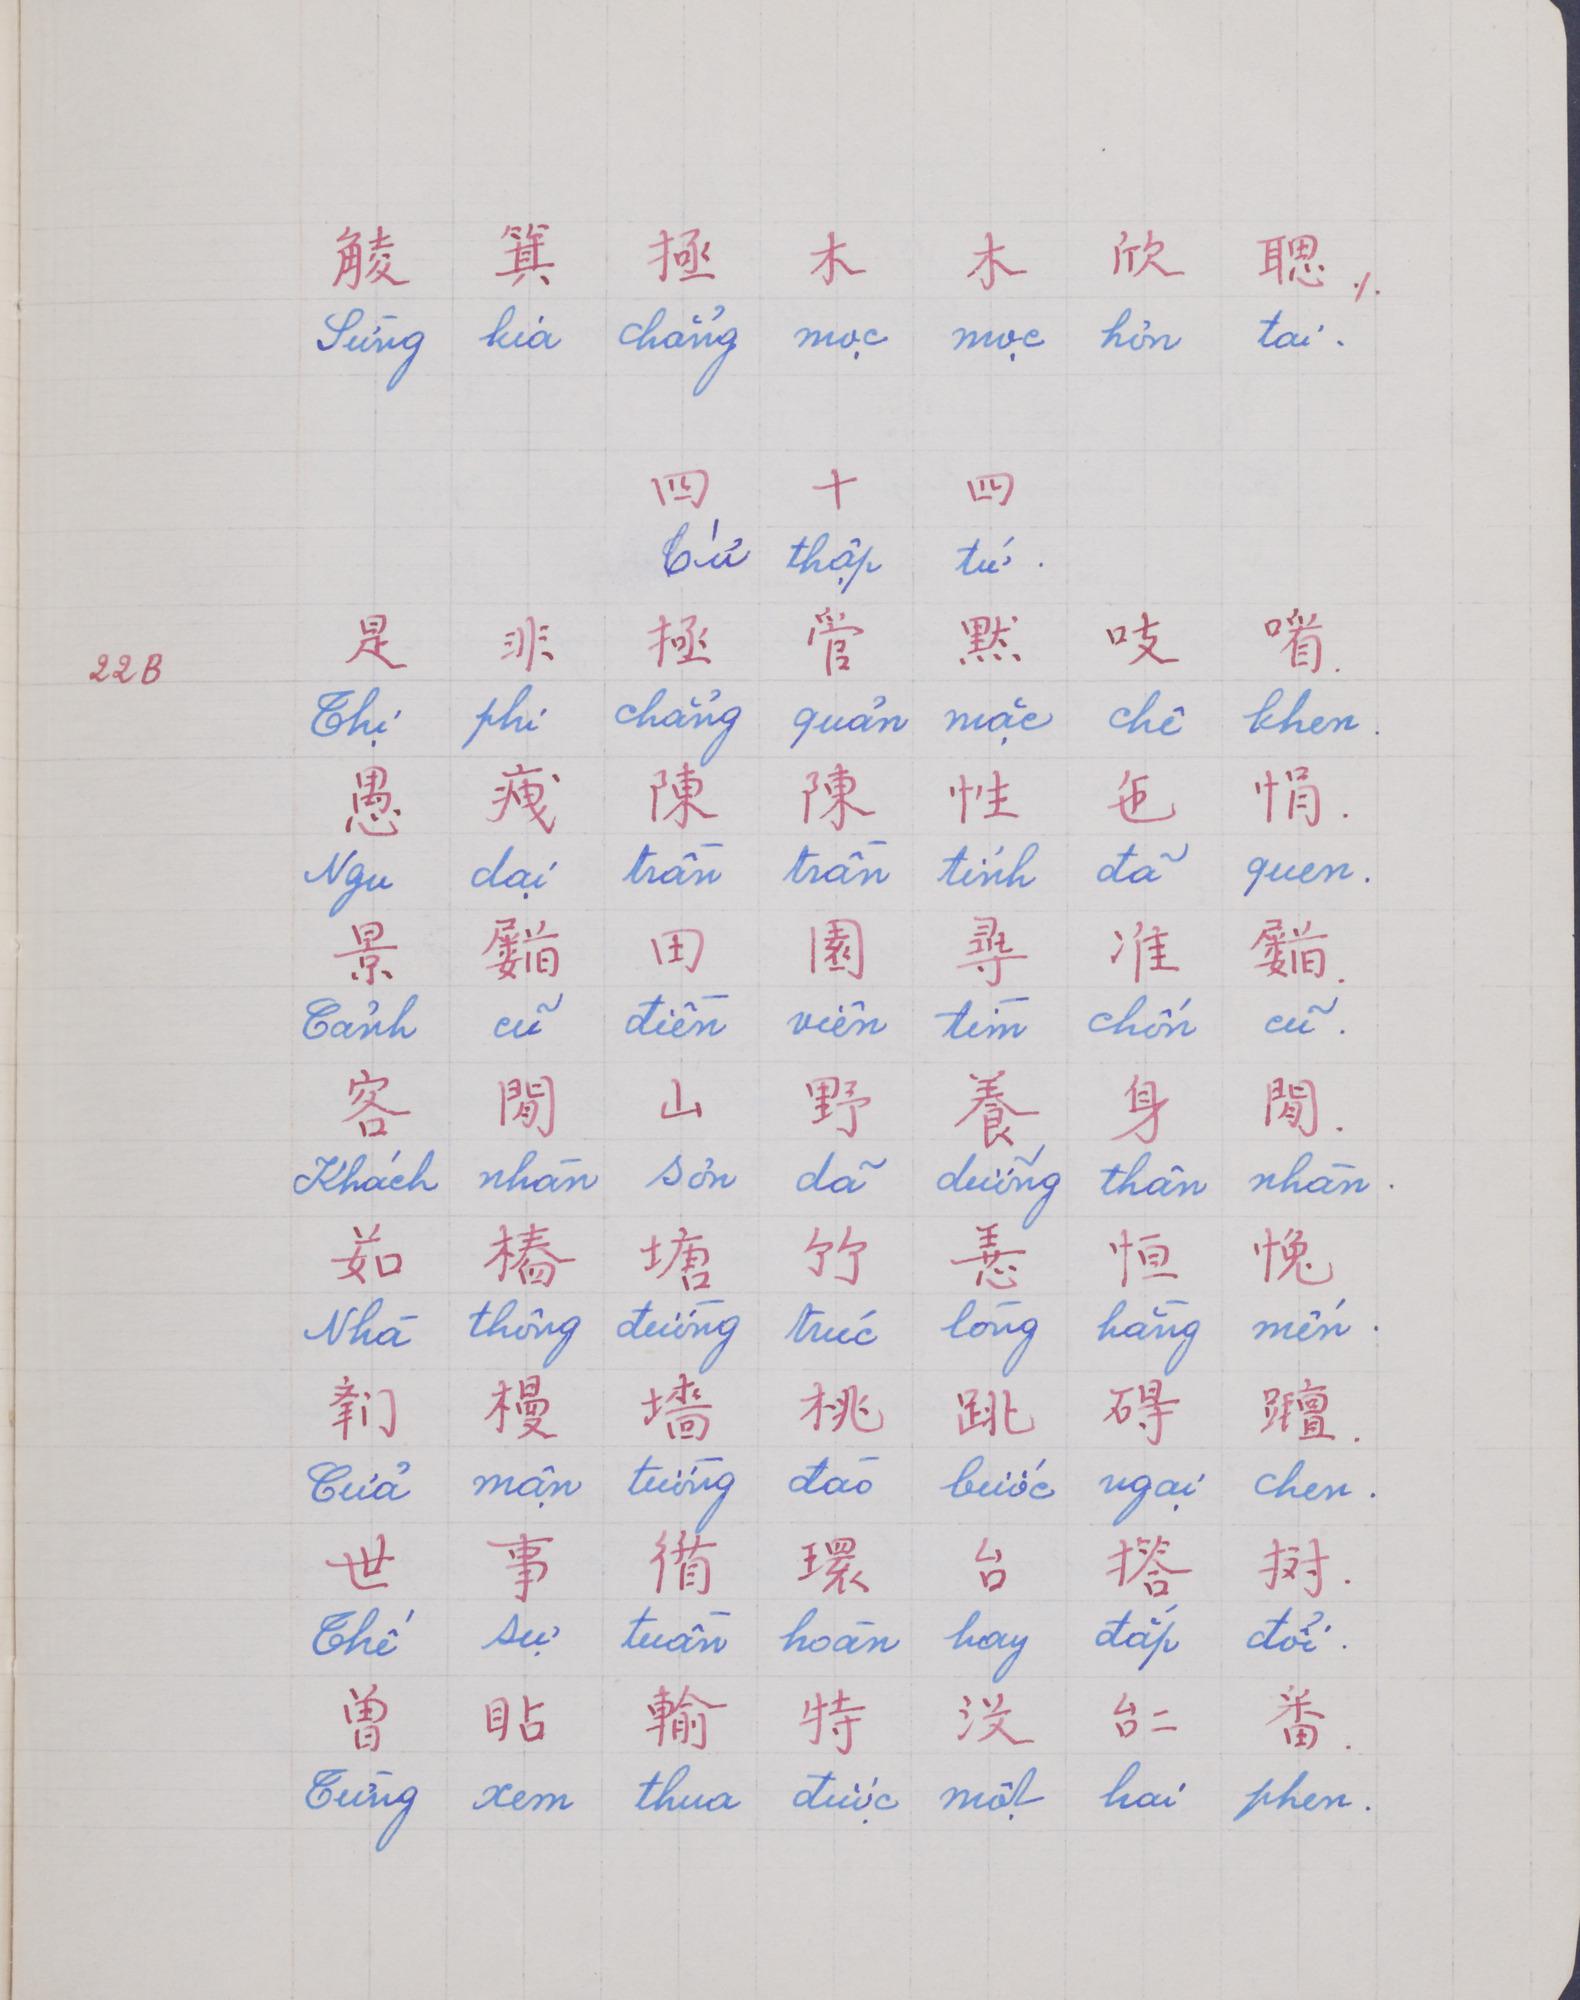 䚬 箕 拯 木 木 欣 聦 ./.
Sừng kia chẳng mọc mọc hơn tai.
四 十 四
Tứ thập tứ.
是 非 拯 管 黙 吱 㗂.
Thị phi chẳng quản mặc chê khen.
愚 𤵺 陳 陳 性 㐌 悁.
22B
Ngu dại trần trần tính đã quen.
景 𡳰 田 園 尋 准 𡳰.
Cảnh cũ điền viên tìm chốn cũ.
容 閒 山 野 養 身 閒.
Khách nhàn sơn dã dưỡng thân nhàn.
茹 樁 塘 竹 𢚸 恒 悗
Nhà thông đường trúc lòng hằng mến.
𨷯 槾 墻 桃 跳 碍 蹎.
Cửa mận tường đào bước ngại chen.
世 事 循 環 台 撘 𢭰.
Thế sự tuần hoàn hay đắp đổi.
曾 䀡 輸 特 没 𠄩 番.
Từng xem thua được một hai phen.